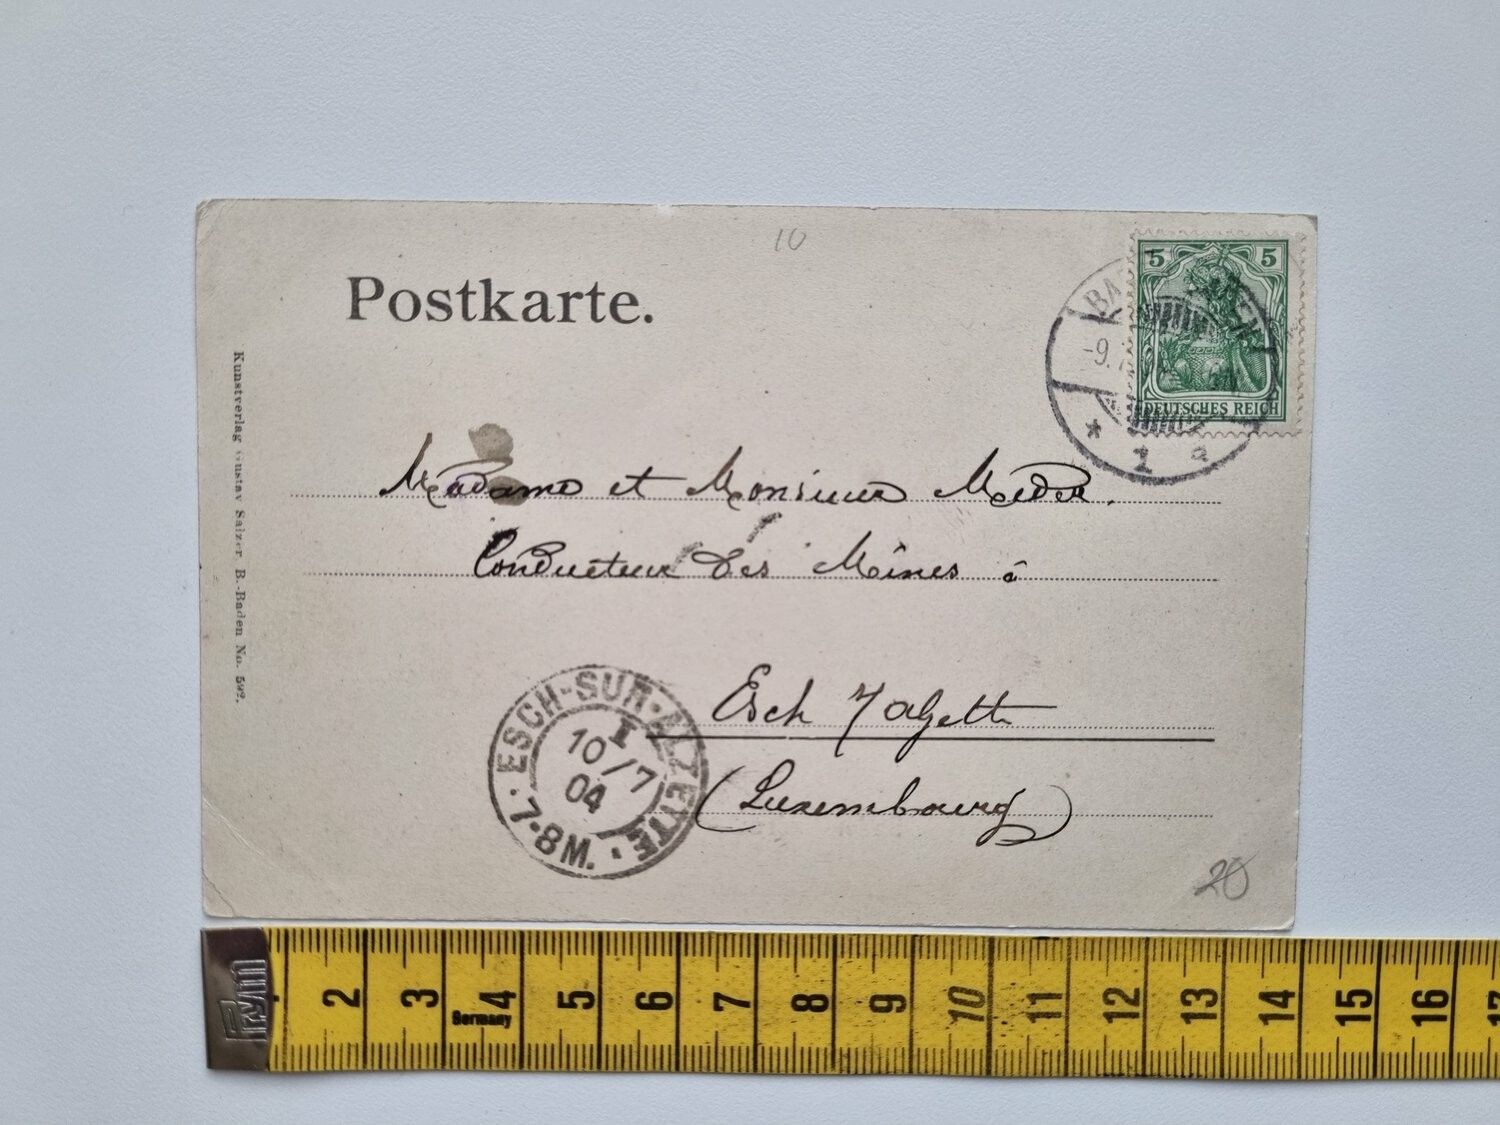 10
Postkarte.
5 5
DEUTSCHES REICH
BA
-9.
* 1 a
Kunstverlag Gustav Salzer B.-Baden No. 592.
Madame et Monsieur Meder.
Conducteur des Mines à
Esch s/Alzette
(Luxembourg)
ESCH-SUR-ALZETTE
I
10/7
04
7-8M.
20
Prym
2 3 4 5 6 7 8 9 10 11 12 13 14 15 16 17
Germany